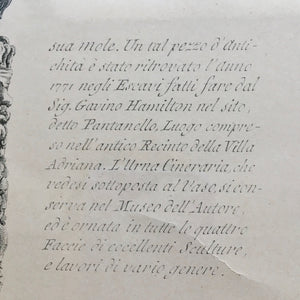 sua mole. Un tal pezzo d'Anti-
chità è stato ritrovato l'Anno
1771 negli Escavi fatti fare dal
Sig. Gavino Hamilton nel sito,
detto Pantanello, Luogo compre-
so nell'antico Recinto della Villa
Adriana. L'Urna Cineraria, che
vedesi sottoposta al Vaso, si con-
serva nel Museo dell'Autore,
ed è ornata in tutte le quattro
Faccie di eccellenti Sculture,
e lavori di vario genere.